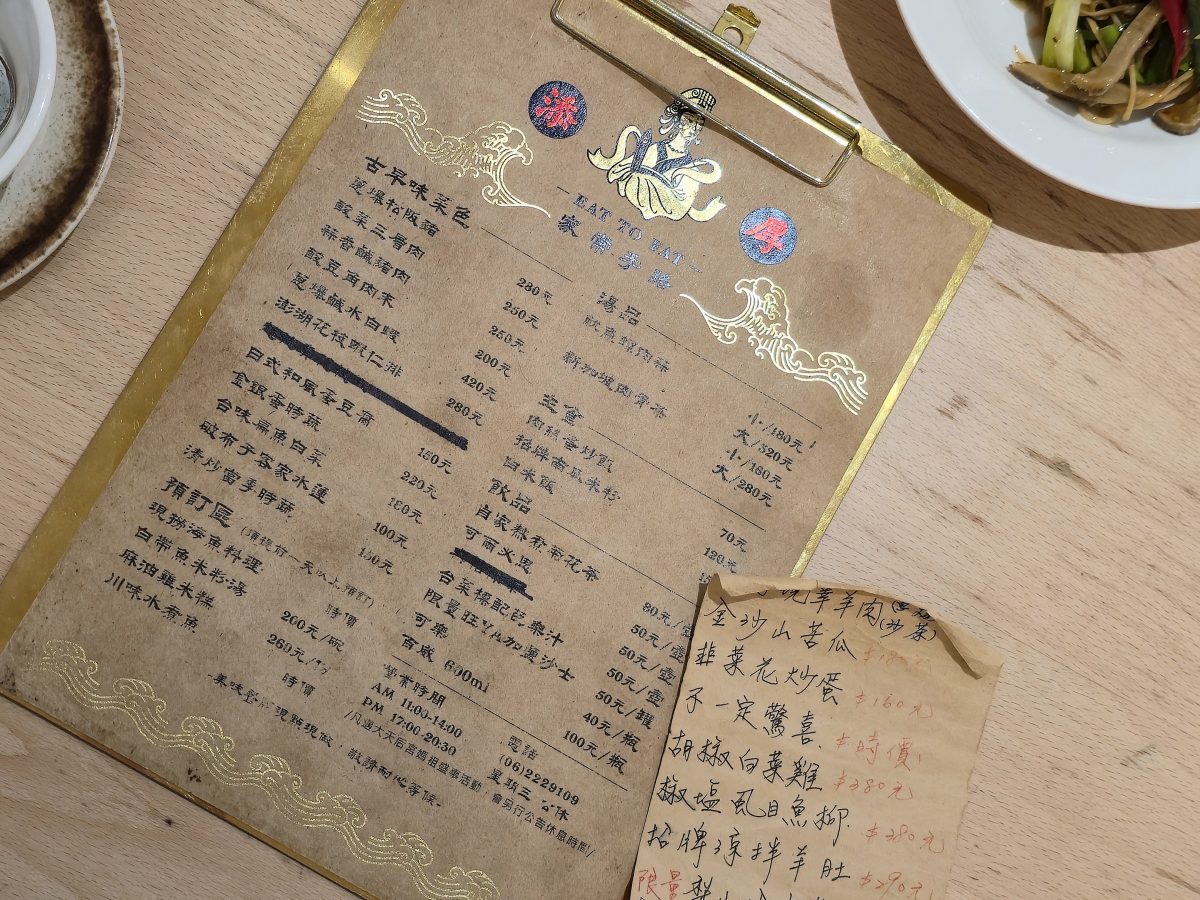 EAT TO EAT
家常手路
古早味菜色
蔥爆松阪豬 280元
酸菜三層肉 250元
蒜香鹹豬肉 250元
酸豆角肉末 200元
蔥爆鹹水白蝦 420元
澎湖花枝蝦仁排 280元
日式和風蛋豆腐 150元
金銀蛋時蔬 220元
台味扁魚白菜
破布子客家水蓮 100元
清炒當季時蔬
預訂區 (須提前一天以上預訂)
現撈海魚料理 時價
白帶魚米粉湯 200元/碗
麻油雞米糕 260元/
川味水煮魚 時價
湯品
魷魚螺肉蒜 小/180元
大/320元
新加坡肉骨茶 小/180元
大/280元
主食
肉絲蛋炒飯 70元
招牌南瓜米粉 120元
白米飯
飲品
自家熬煮菊花茶 80元/壺
可爾必思 50元/壺
50元/壺
台菜標配芭樂汁 50元/壺
限量旺 加鹽沙士 50元/罐
可樂 40元/瓶
百威 600ml 100元/瓶
營業時間
AM 11:00-14:00
PM 17:00-20:30
電話
(06)2229109
星期三 公休
/凡遇大天后宮媽祖盛事活動，會另行公告休息時間/
美味 現點現做，敬請耐心等候
羊肉(
沙茶)
金沙山苦瓜
韭菜花炒蛋 $160元
不一定驚喜 $時價
胡椒白菜雞 $380元
椒塩虱目魚柳 $280元
招牌涼拌羊肚 $290元
限量